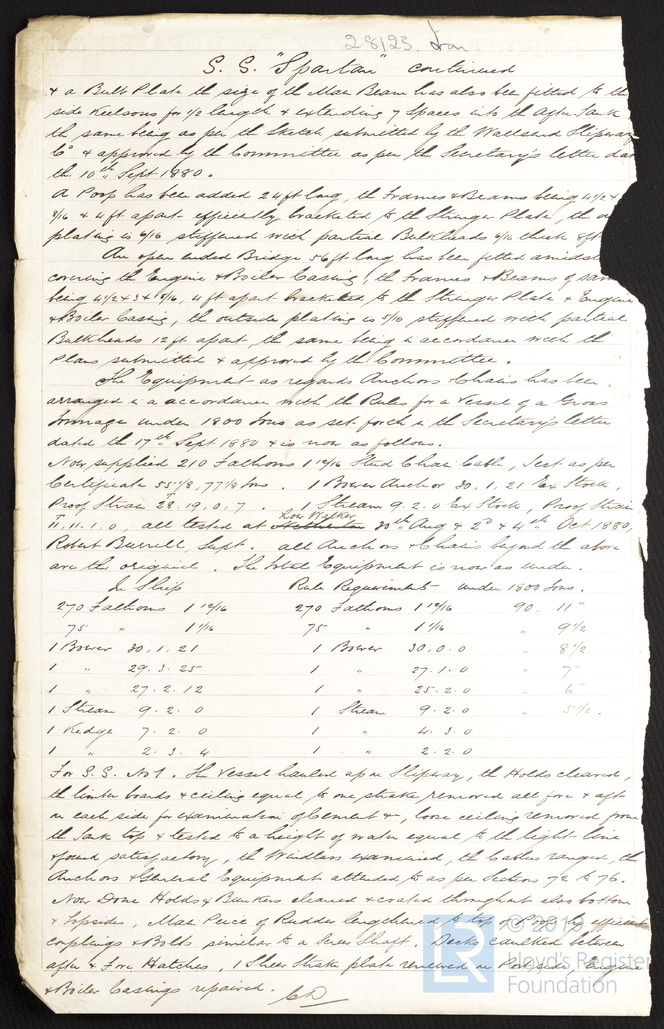 28123. Iron
S. S. "Spartan" continued
& a Bulb Plate the size of the Main Beam has also been fitted to the
side Keelsons for 1/2 length & extending 7 spaces into the After Tank
the same being as per the Sketch submitted by the Wallsend Slipway
Co & approved by the Committee as per the Secretary's letter
the 10th Sept 1880.
A Poop has been added 24 ft long, the Frames & Beams being 4 1/2 x
4 ft apart efficiently bracketed to the Stringer Plate, the
plating is 6/16 stiffened with partial Bulkheads 6/16 thick 8ft
An open ended Bridge 56 ft long has been fitted amidst
covering the Engine & Boiler Casing, the Frames & Beams of same
being 4 1/2 x 3 x 6/16, 4 ft apart bracketed to the Stringer Plate & Engine
& Boiler Casing, the outside plating is 5/16 stiffened with partial
Bulkheads 12 ft apart, the same being in accordance with the
Plans submitted & approved by the Committee.
The Equipment as regards Anchors & Chains has been
arranged in accordance with the Rules for a Vessel of a Gross
Tonnage under 1800 Tons as set forth in the Secretary's letter
dated the 17th Sept 1880 & is now as follows.
Now supplied 210 Fathoms 1 10/16 Stud Chain Cable, Test as per
Certificate 55 1/8, 77 1/8 Tons. 1 Bower Anchor 30.1.21 Ex Stock,
Proof Strain 28.19.0.7. 1 Stream 9.2.0 Ex Stock, Proof Strain
11.11.1.0, all tested at Low Walker 30th Aug & 2d & 4th Oct 1880,
Robert Burrell, Supt. all Anchors & Chains beyond the above
are the original. The total Equipment is now as under.
In Ship Rule Requirements under 1800 Tons.
270 Fathoms 1 10/16 270 Fathoms 1 10/16 90. 11"
75 " 1 1/16 75 " 1 1/16 " 9 1/2
1 Bower 30.1.21 1 Bower 30.0.0 " 8 1/2
1 " 29.3.25 1 " 27.1.0 " 7"
1 " 27.2.12 1 " 25.2.0 " 6"
1 Stream 9.2.0 1 Stream 9.2.0 " 5 1/2.
1 Kedge 7.2.0 1 " 4.3.0
1 " 2.3.4 1 " 2.2.0
For S.S. No 1. The Vessel hauled up on Slipway, the Holds cleared,
the limber boards & ceiling equal to one strake removed all fore & aft
on each side for examination of Cement &c, loose ceiling removed from
the Tank top & tested to a height of water equal to the light line
& found satisfactory, the Windlass examined, the Cables ranged, the
Anchors & General Equipment attended to as per Sections 72 to 76.
Now Done Holds & Bunkers cleared & coated throughout also bottom
& Topsides, Main Piece of Rudder lengthened to top of Poop by efficient
couplings & Bolts similar to a Screw Shaft. Decks caulked between
after & Fore Hatches, 1 Sheer Strake plate renewed on Port side Engine
& Boiler Casings repaired.
LR
© 2019
Lloyd's Register
Foundation